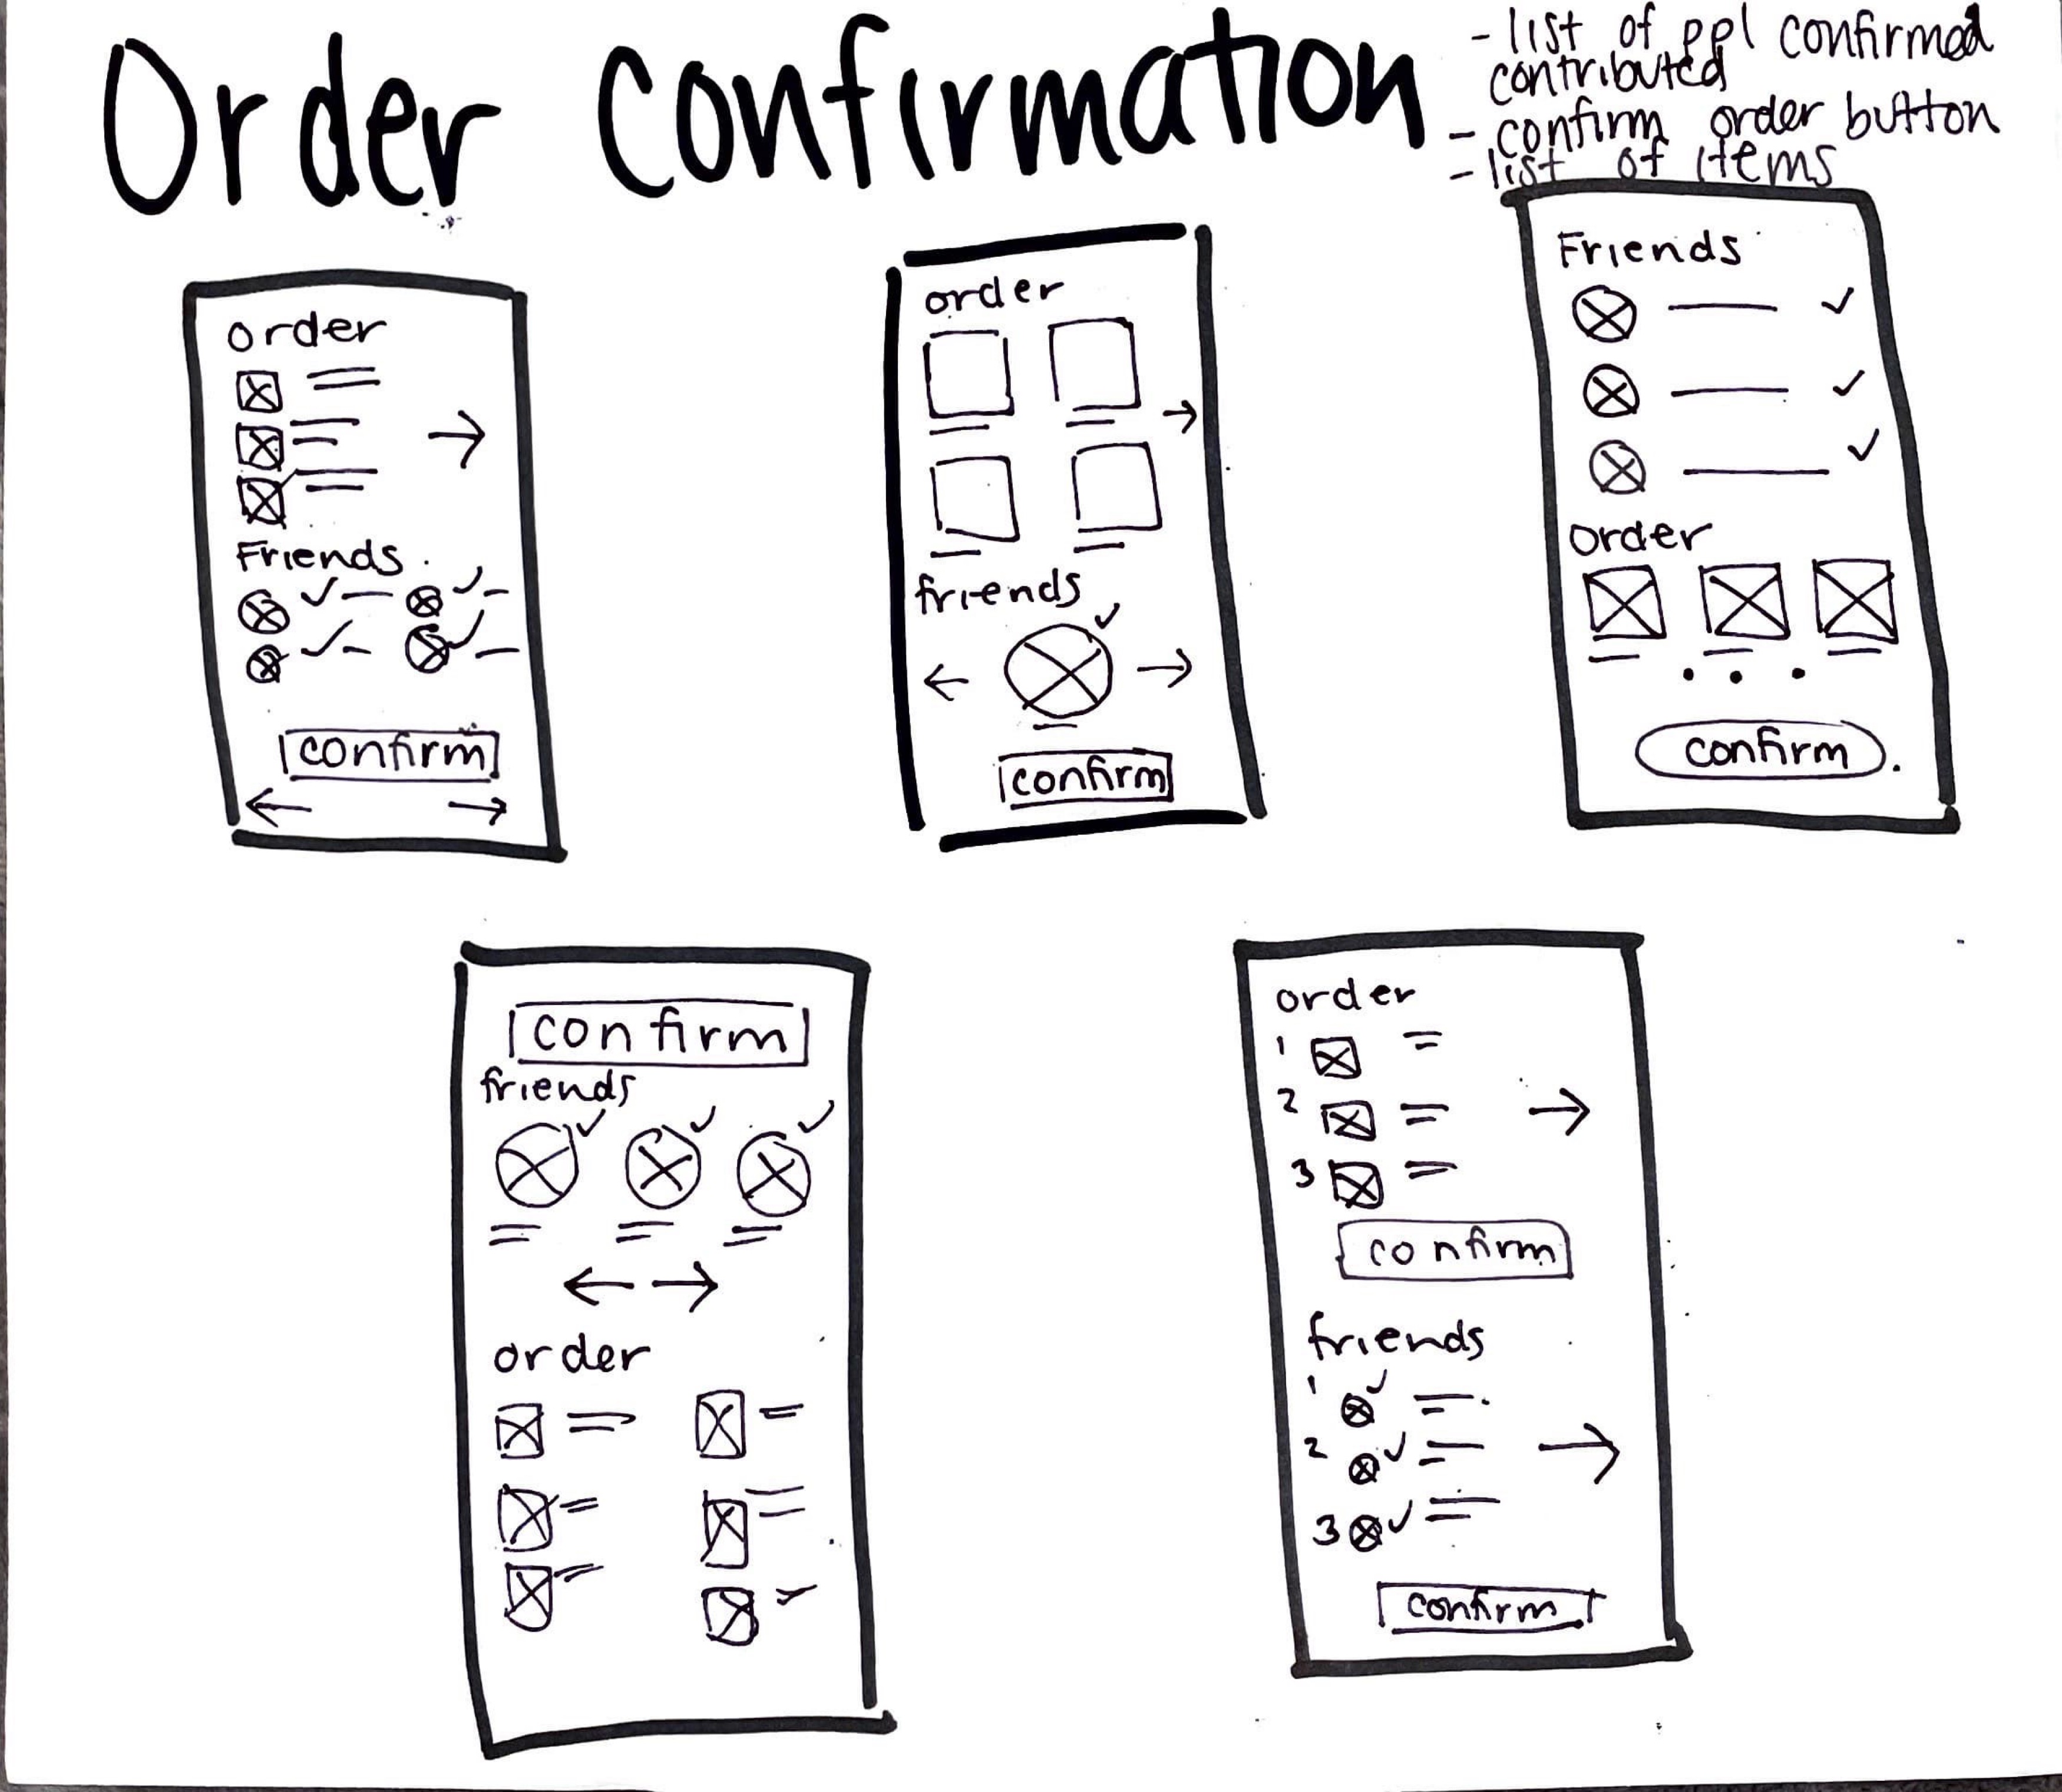 Order Confirmation
- list of ppl confirmed
contributed
- confirm order button
- list of items
order
Friends
confirm
order
friends
confirm
Friends
order
confirm
confirm
friends
order
order
1
2
3
confirm
friends
1
2
3
confirm